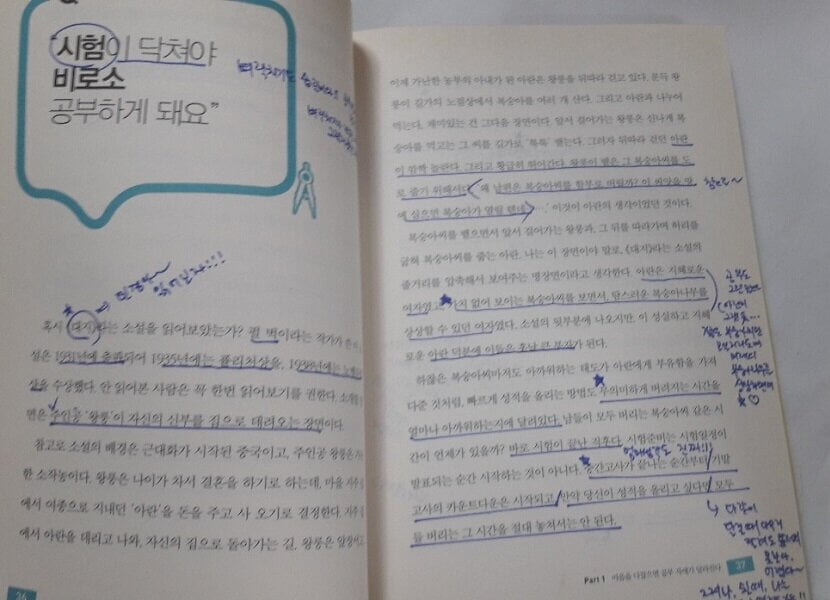 "시험이 닥쳐야
비로소
공부하게 돼요"
혹시 《대지》라는 소설을 읽어보았는가? 펄 벅이라는 작가가 쓴 이 소
설은 1931년에 출판되어 1935년에는 퓰리처상을, 1938년에는 노벨
상을 수상했다. 안 읽어본 사람은 꼭 한번 읽어보기를 권한다. 소설
면은 주인공 '왕룽'이 자신의 신부를 집으로 데려오는 장면이다.
참고로 소설의 배경은 근대화가 시작된 중국이고, 주인공 왕룽은
한 소작농이다. 왕룽은 나이가 차서 결혼을 하기로 하는데, 마을 지주
에서 여종으로 지내던 '아란'을 돈을 주고 사 오기로 결정한다. 지주
에서 아란을 데리고 나와, 자신의 집으로 돌아가는 길. 왕룽은 앞장서
26
이제 가난한 농부의 아내가 된 아란은 왕룽을 뒤따라 걷고 있다. 문득 왕
룽이 길가의 노점상에서 복숭아를 여러 개 산다. 그리고 아란과 나누어
먹는다. 재미있는 건 그다음 장면이다. 앞서 걸어가는 왕룽은 신나게 복
숭아를 먹고는 그 씨를 길가로 '툭툭' 뱉는다. 그러자 뒤따라 걷던 아란
이 깜짝 놀란다. 그리고 황급히 뛰어간다. 왕룽이 뱉은 그 복숭아씨를 도
로 줍기 위해서다. '왜 남편은 복숭아씨를 함부로 버릴까? 이 씨앗을 땅
에 심으면 복숭아가 열릴 텐데….' 이것이 아란의 생각이었던 것이다.
복숭아씨를 뱉으면서 앞서 걸어가는 왕룽과, 그 뒤를 따라가며 허리를
굽혀 복숭아씨를 줍는 아란. 나는 이 장면이야 말로, 《대지》라는 소설의
줄거리를 압축해서 보여주는 명장면이라고 생각한다. 아란은 지혜로운
여자였고 가치 없어 보이는 복숭아씨를 보면서, 탐스러운 복숭아나무를
상상할 수 있던 여자였다. 소설의 뒷부분에 나오지만, 이 성실하고 지혜
로운 아란 덕분에 이들은 훗날 큰 부자가 된다.
하찮은 복숭아씨마저도 아까워하는 태도가 아란에게 부유함을 가져
다준 것처럼, 빠르게 성적을 올리는 방법도 무의미하게 버려지는 시간을
얼마나 아까워하는지에 달려있다. 남들이 모두 버리는 복숭아씨 같은 시
간이 언제가 있을까? 바로 시험이 끝난 직후다. 시험준비는 시험일정이
발표되는 순간 시작하는 것이 아니다. 중간고사가 끝나는 순간부터 기말
고사의 카운트다운은 시작되고, 만약 당신이 성적을 올리고 싶다면 모두
들 버리는 그 시간을 절대 놓쳐서는 안 된다.
Part 1 마음을 다잡으면 공부 자세가 달라진다
27